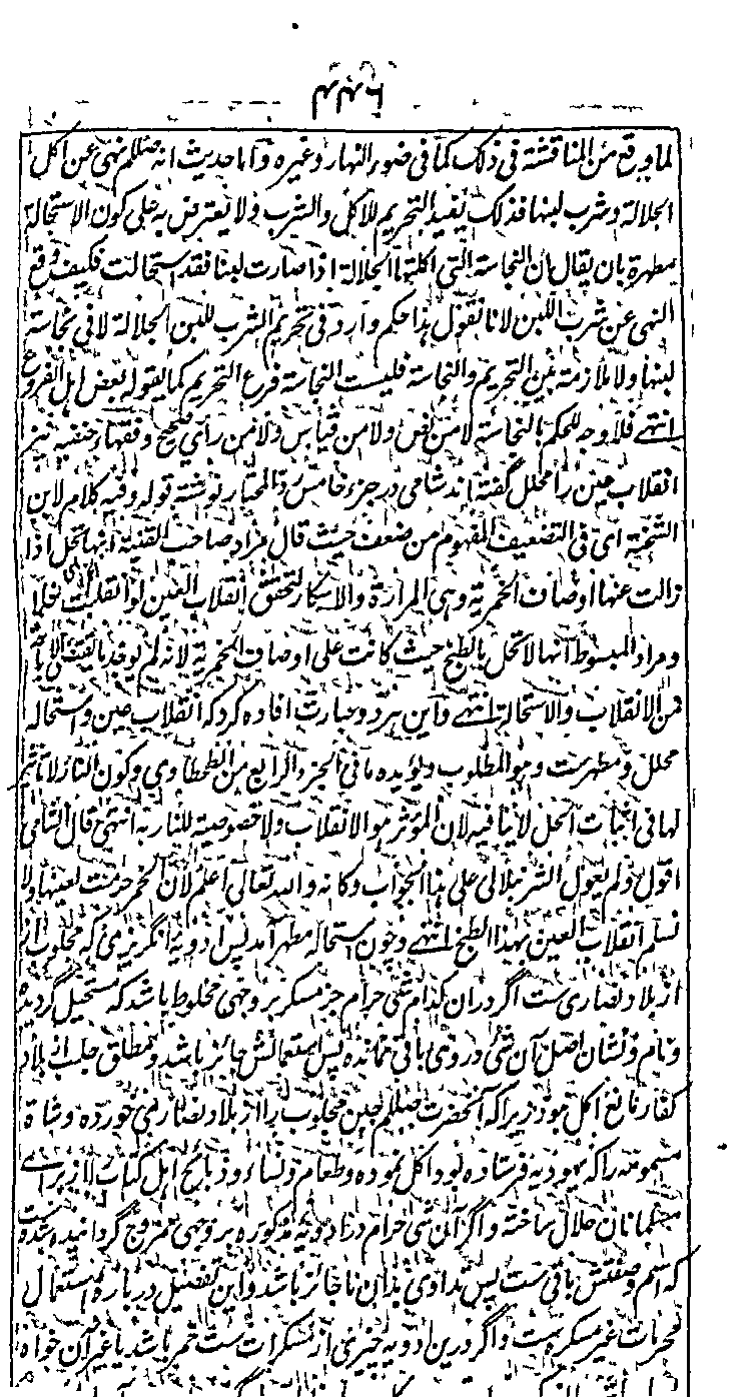 لما وقع من المناقشة فى ذلك كما فى ضوء النهار وغيره واما حديث انه صللم نهى عن اكل
الجلالة وشرب لبنها فذلك يفيد التحريم للاكل والشرب ولا يعترض به على كون الاستحالة
مطهرة بان يقال ان النجاسة التى اكلتها الجلالة اذا صارت لبنا فقد استحالت فكيف وقع
النهى عن شرب اللبن لانا نقول هذا حكم وارد فى تحريم الشرب للبن الجلالة لا فى نجاسة
لبنها ولا ملازمة بين التحريم والنجاسة فليست النجاسة فرع التحريم كما يقوله بعض اهل الفروع
انتهے فلا وجه للحكم بالنجاسة لا من نص ولا من قياس ولا من راى صحيح وفقهاء حنفيه نيز
انقلاب عين را محلل گفته اند شامى در جزء خامس رد المحتار نوشته قوله وفيه كلام لابن
الشحنة اى فى التضعيف المفهوم من ضعف حيث قال مراد صاحب القنية انها تحل اذا
زالت عنها اوصاف الخمرية وهى المرارة والاسكار لتحقق انقلاب العين كما لو انقلبت خلا
ومراد المبسوط انها لا تحل بالطبخ حيث كانت على اوصاف الخمرية لانه لم يوجد ما يقتضى الاباحة
من الانقلاب والاستحالة انتهے واين هر دو عبارت افاده كرد كه انقلاب عين واستحاله
محلل ومطهرست وهو المطلوب ويؤيده ما فى الجزء الرابع من الطحطاوى وكون النار لا تاثير
لها فى اثبات الحل لا ينافيه لان المؤثر هو الانقلاب ولا خصوصية للنار به انتهى قال الشامى
اقول ولم يعول الشرنبلالى على هذا الجواب وكانه والله تعالى اعلم لان الخمر حرمت لعينها ولا
نسلم انقلاب العين بهذا الطبخ انتهے وچون استحاله مطهر آمد پس ادويه انگريزى كه مجلوب از
از بلاد نصارى ست اگر دران كدام شى حرام جز مسكر بر وجهى مخلوط باشد كه مستحيل گرديده
ونام ونشان اصل آن شى در وى باقى نمانده پس استعمالش جائز باشد ومطلق جلب از بلاد
كفار مانع اكل نبود زيرا كه آنحضرت صللم جبن مجلوب را از بلاد نصارى خورده وشاة
مسمومه را كه يهوديه فرستاده بود اكل نموده وطعام ونساء وذبائح اهل كتاب را از براے
مسلمانان حلال ساخته واگر آن شى حرام در ادويه مذكوره بر وجهى ممزوج گردانيده شده ست
كه اسم وصفتش باقى ست پس تداوى بدان ناجائز باشد واين تفصيل درباره استعمال
محرمات غير مسكره ست واگر درين ادويه چيزى از مسكرات ست خمر باشد يا غير آن خواه